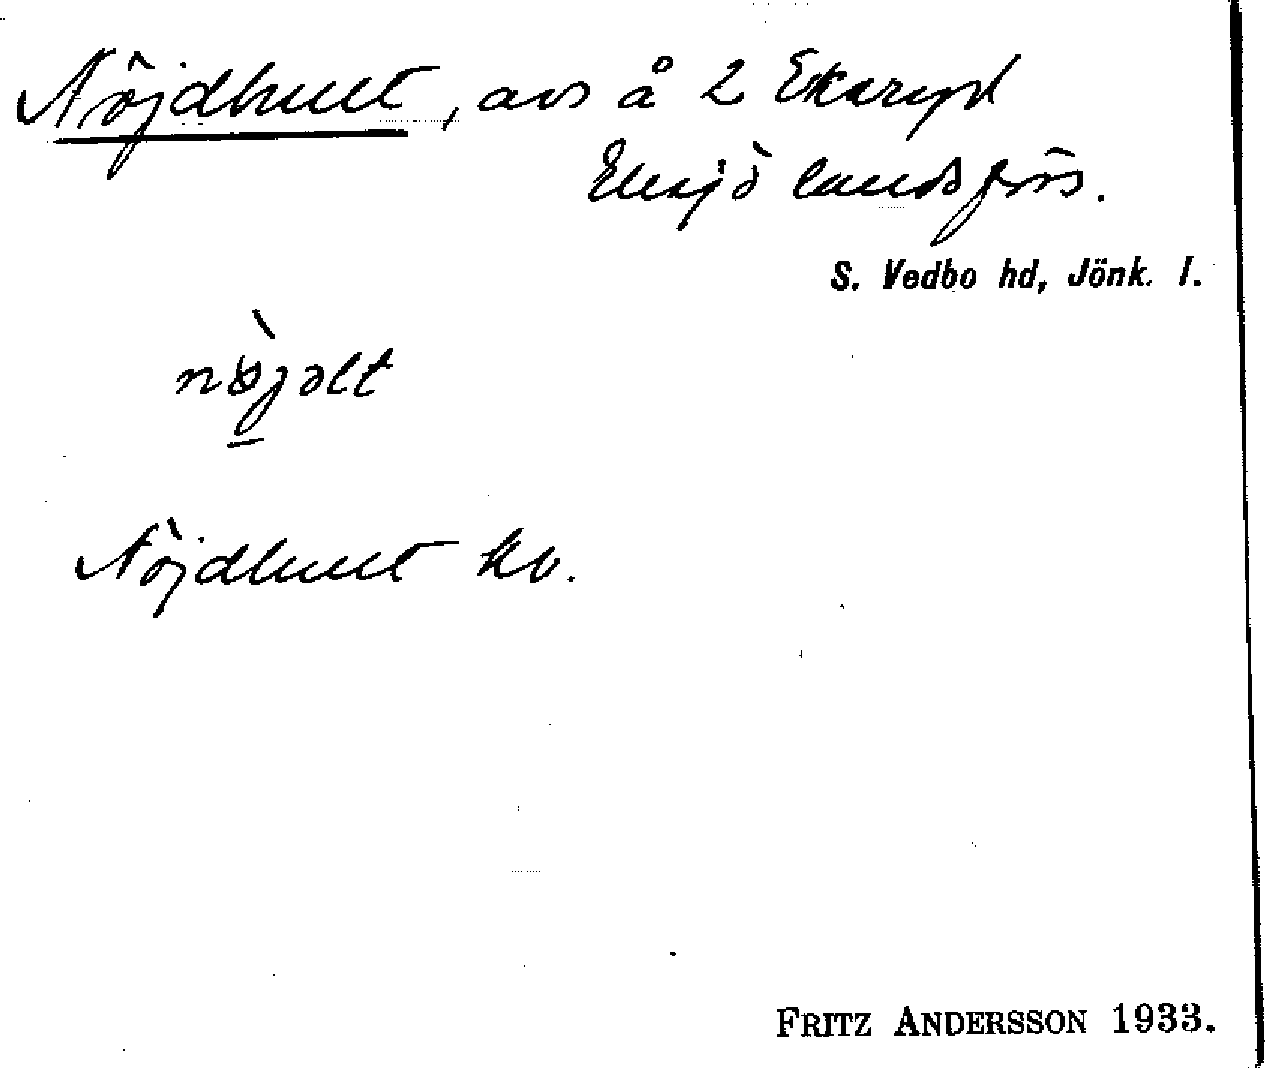 Nöjdhult, avs å 2 Ekaryd
Eksjö landsförs.
S. Vedbo hd, Jönk. l.
Nöjdhult kb.
FRITZ ANDERSSON 1933.